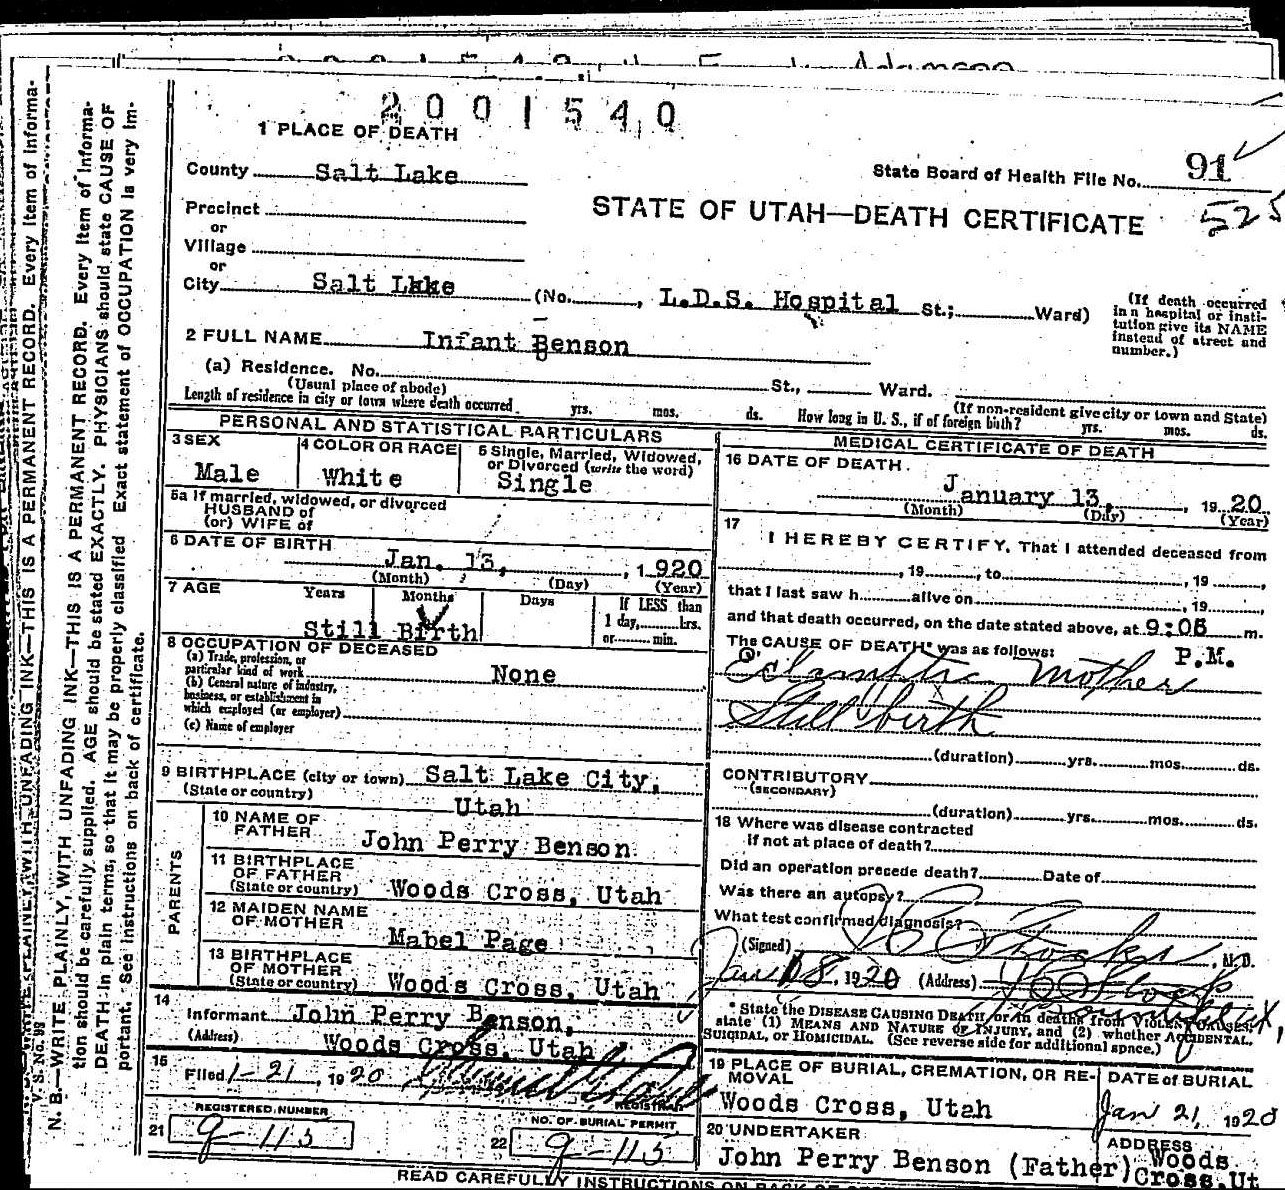 2001540
1 PLACE OF DEATH
County Salt Lake
State Board of Health File No. 91
525
STATE OF UTAH—DEATH CERTIFICATE
Precinct
or
Village
or
City Salt Lake (No. , L.D.S. Hospital St.; Ward)
(If death occurred in a hospital or institution give its NAME instead of street and number.)
2 FULL NAME Infant Benson
(a) Residence. No. St., Ward.
(Usual place of abode) (If non-resident give city or town and State)
Length of residence in city or town where death occurred yrs. mos. ds. How long in U. S., if of foreign birth? yrs. mos. ds.
PERSONAL AND STATISTICAL PARTICULARS
3 SEX Male
4 COLOR OR RACE White
5 Single, Married, Widowed, or Divorced (write the word) Single
5a If married, widowed, or divorced
HUSBAND of
(or) WIFE of
6 DATE OF BIRTH
Jan. 13, , 1 920
(Month) (Day) (Year)
7 AGE Years Months Days If LESS than
1 day, hrs.
or min.
Still Birth
8 OCCUPATION OF DECEASED
(a) Trade, profession, or
particular kind of work None
(b) General nature of industry,
business, or establishment in
which employed (or employer)
(c) Name of employer
9 BIRTHPLACE (city or town) Salt Lake City,
(State or country) Utah
PARENTS
10 NAME OF FATHER John Perry Benson
11 BIRTHPLACE OF FATHER (State or country) Woods Cross, Utah
12 MAIDEN NAME OF MOTHER Mabel Page
13 BIRTHPLACE OF MOTHER (State or country) Woods Cross, Utah
14
Informant John Perry Benson,
(Address) Woods Cross, Utah
15
Filed 1-21, 1920
REGISTRAR
REGISTERED NUMBER
21 9-113
NO. OF BURIAL PERMIT
22 9-113
MEDICAL CERTIFICATE OF DEATH
16 DATE OF DEATH.
January 13, , 19 20
(Month) (Day) (Year)
17
I HEREBY CERTIFY, That I attended deceased from
, 19 , to , 19 ,
that I last saw h alive on , 19 ,
and that death occurred, on the date stated above, at 9:05 m.
The CAUSE OF DEATH* was as follows: P.M.
mother
Still birth
(duration) yrs. mos. ds.
CONTRIBUTORY
(SECONDARY)
(duration) yrs. mos. ds.
18 Where was disease contracted
if not at place of death?
Did an operation precede death? Date of
Was there an autopsy?
What test confirmed diagnosis?
(Signed) , M.D.
Jan 18, 1920 (Address)
* State the DISEASE CAUSING DEATH, or in deaths from VIOLENT CAUSES,
state (1) MEANS AND NATURE OF INJURY, and (2) whether ACCIDENTAL,
SUICIDAL, or HOMICIDAL. (See reverse side for additional space.)
19 PLACE OF BURIAL, CREMATION, OR REMOVAL
Woods Cross, Utah
DATE of BURIAL
Jan 21, 1920
20 UNDERTAKER
John Perry Benson (Father)
ADDRESS
Woods
Cross, Ut
READ CAREFULLY INSTRUCTIONS ON BACK OF
V. S. No. 98
N. B.—WRITE PLAINLY, WITH UNFADING INK—THIS IS A PERMANENT RECORD. Every item of informa-
tion should be carefully supplied. AGE should be stated EXACTLY. PHYSICIANS should state CAUSE OF
DEATH in plain terms, so that it may be properly classified. Exact statement of OCCUPATION is very im-
portant. See instructions on back of certificate.